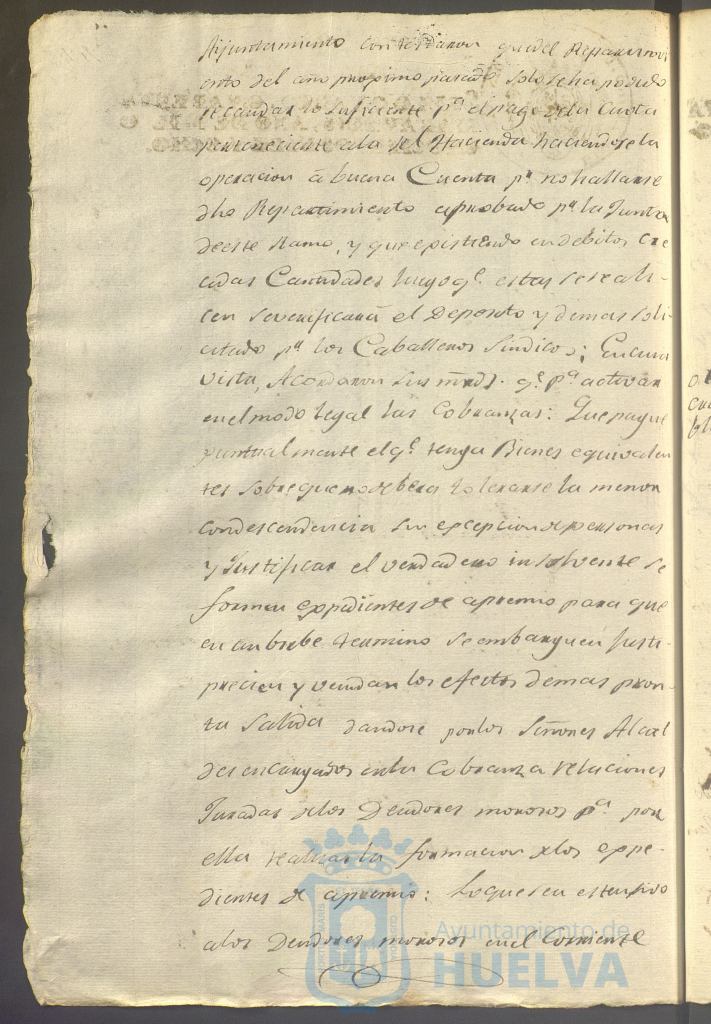 Ayuntamiento contestaron que del Repartimi
ento del año proximo pasado solo se ha podido
recaudar lo suficiente pª. el pago de la Cuota
perteneciente a la Rl. Hacienda haciendose la
operacion á buena Cuenta pr. no hallarse
dho Repartimiento aprobado pr. la Junta
de este Ramo, y que existiendo en debitos cre
cidas Cantidades luego qe. estas se reali-
cen se verificará el Deposito y demas soli-
citado pr. los Caballeros Sindicos; En cuia
vista, Acordaron sus mrds. qe. pª. activar
en el modo legal las Cobranzas: Que pague
puntualmente el qe. tenga Bienes equivalen
tes sobre que no debera tolerarse la menor
condescendencia sin excepcion de personas
y Justificar el verdadero insolvente se
formen expedientes de apremio para que
en un brebe termino se embarguen Justi-
precien y vendan los efectos de mas pron-
ta Salida dandose por los Señores Alcal
des encargados en la Cobranza relaciones
Juradas de los Deudores morosos pª. por
ella realizar la formacion de los expe-
dientes de apremio: Lo que sea estensivo
a los Deudores morosos en el corriente
Ayuntamiento de
HUELVA